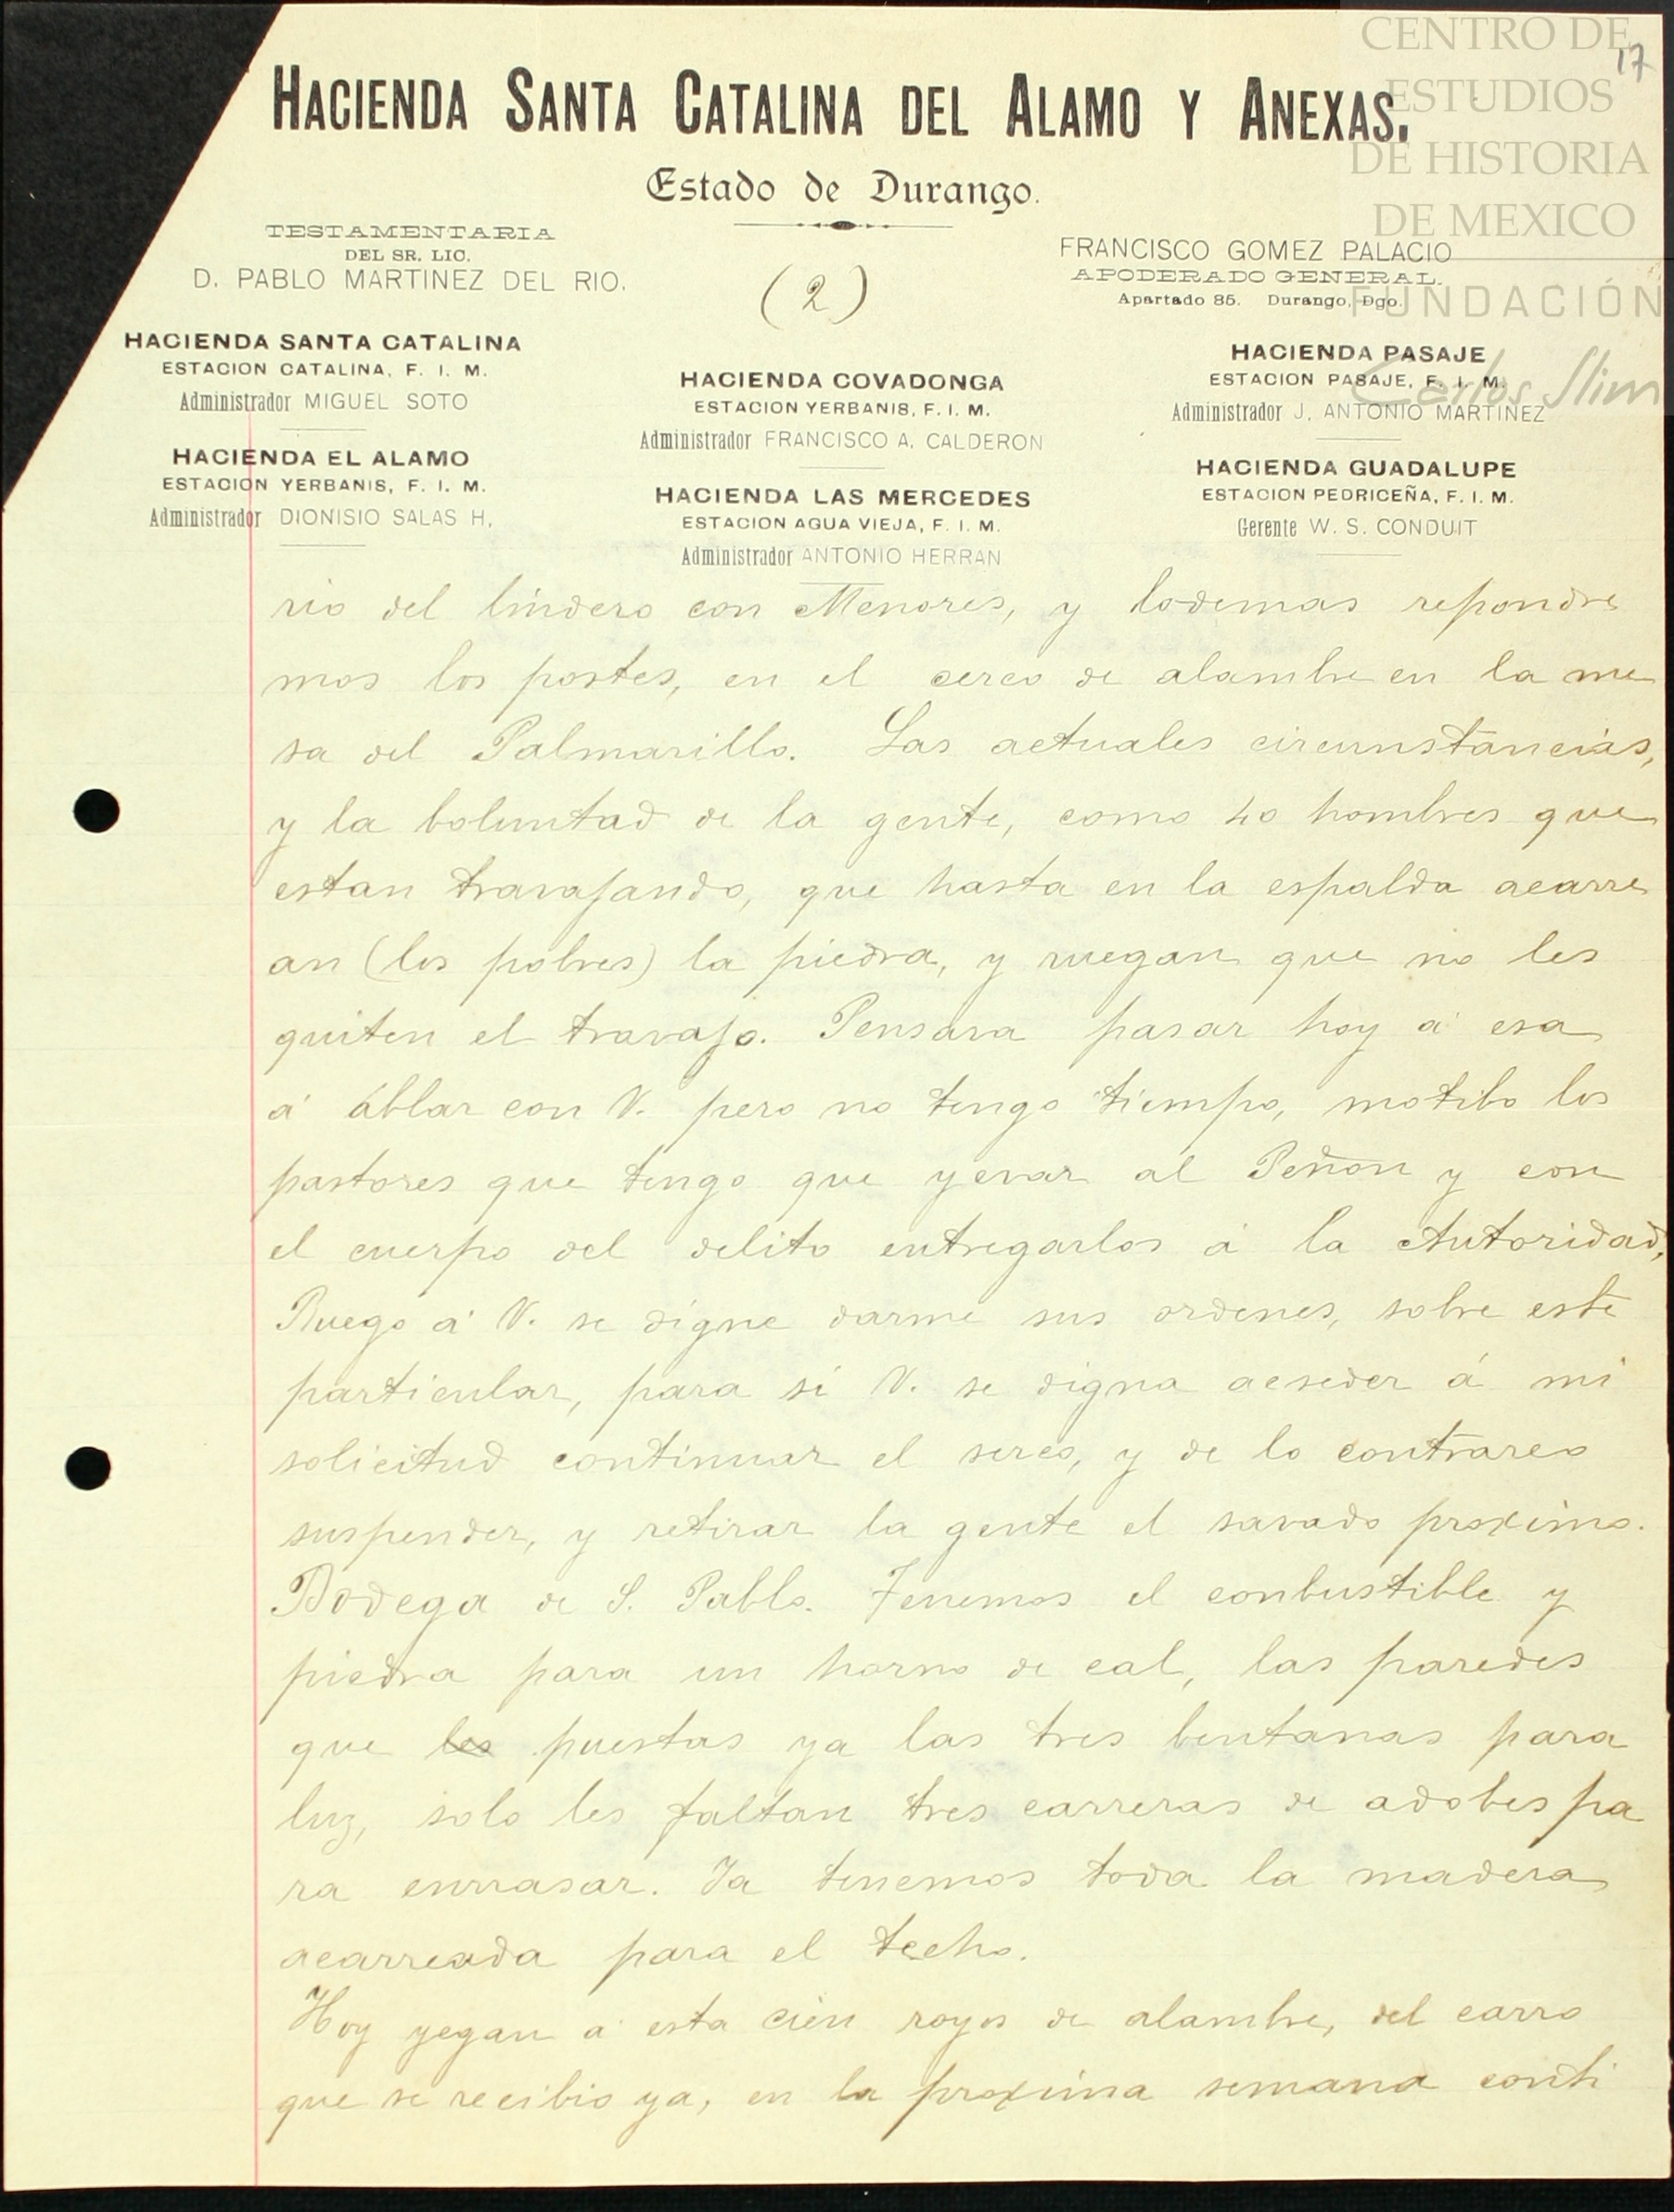 CENTRO DE
ESTUDIOS
DE HISTORIA
DE MEXICO
FUNDACIÓN
Carlos Slim
17
HACIENDA SANTA CATALINA DEL ALAMO Y ANEXAS.
Estado de Durango.
TESTAMENTARIA
DEL SR. LIC.
D. PABLO MARTINEZ DEL RIO.
(2)
FRANCISCO GOMEZ PALACIO
APODERADO GENERAL.
Apartado 85. Durango, Dgo.
HACIENDA SANTA CATALINA
ESTACION CATALINA, F. I. M.
Administrador MIGUEL SOTO
HACIENDA EL ALAMO
ESTACION YERBANIS, F. I. M.
Administrador DIONISIO SALAS H.
HACIENDA COVADONGA
ESTACION YERBANIS, F. I. M.
Administrador FRANCISCO A. CALDERON
HACIENDA LAS MERCEDES
ESTACION AGUA VIEJA, F. I. M.
Administrador ANTONIO HERRAN
HACIENDA PASAJE
ESTACION PASAJE, F. I. M.
Administrador J. ANTONIO MARTINEZ
HACIENDA GUADALUPE
ESTACION PEDRICEÑA, F. I. M.
Gerente W. S. CONDUIT
rio del lindero con Menores, y lodemas repondre
mos los postes, en el cerco de alambre en la me
sa del Palmarillo. Las actuales circunstancias,
y la boluntad de la gente, como 40 hombres que
estan travajando, que hasta en la espalda acarre
an (los pobres) la piedra, y ruegan que no les
quiten el travajo. Pensava pasar hoy á esa
á áblar con V. pero no tengo tiempo, motibo los
pastores que tengo que yevar al Peñon y con
el cuerpo del delito entregarlos á la Autoridad,
Ruego á V. se digne darme sus ordenes, sobre este
particular, para si V. se digna acseder á mi
solicitud continuar el serco, y de lo contrareo
suspender, y retirar la gente el savado proximo.
Bodega de S. Pablo. Tenemos el conbustible y
piedra para un horno de cal, las paredes
que les puestas ya las tres bentanas para
luz, solo les faltan tres carreras de adobes pa
ra enrrasar. Ya tenemos toda la madera
acarreada para el techo.
Hoy yegan á esta cien royos de alambre, del carro
que se recibio ya, en la proxima semana conti